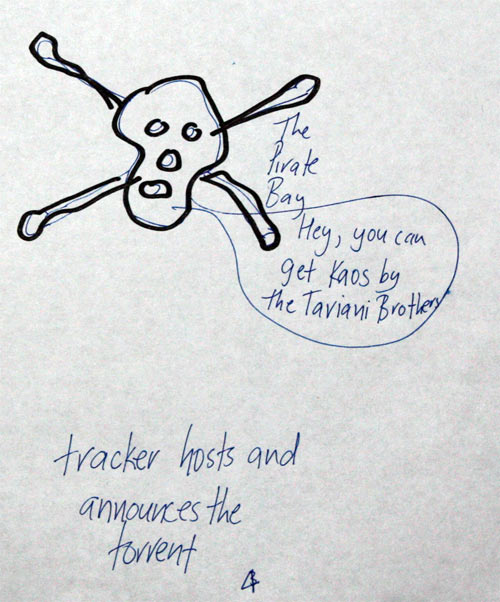 The
Pirate
Bay
Hey, you can
get Kaos by
the Taviani Brothers
tracker hosts and
announces the
torrent
4